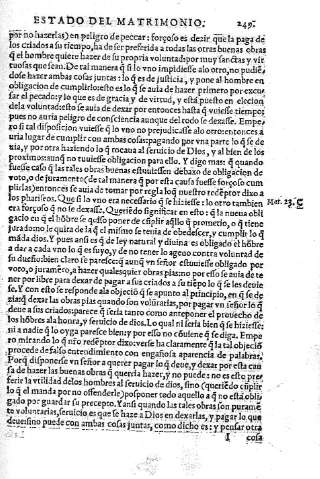 ESTADO DEL MATRIMONIO. 249.
por no hazerlas) en peligro de peccar: forçoso es dezir que la paga de
los criados a su tiempo, ha de ser preferida a todas las otras buenas obras
q el hombre quiere hazer de su propria voluntad: por muy sanctas y vir
tuosas que sean. De tal manera q si lo vno impidiesse alo otro, no pudiē
dose hazer ambas cosas juntas: lo q es de justicia, y pone al hombre en
obligacion de cumplirlo: esto es lo q se aura de hazer primero por excu
sar el peccado: y lo que es de gracia y de virtud, y està puesto en election
dela voluntad: esto se aura de dexar por entonces hasta q vuiesse tiempo:
pues no auria peligro de consciencia aunque del todo se dexasse. Empe
ro si tal disposicion vuiesse q lo vno no prejudicasse alo otro: entonces a
uria lugar de cumplir con ambas cosas: pagando por vna parte lo q se de
uia, y por otra haziendo lo q tocaua al seruicio de Dios, y al bien de los
proximos: aunq no tuuiesse obligacion para ello. Y digo mas: q quando
fuesse caso q las tales obras buenas estuuiessen debaxo de obligacion de
voto, o de juramento (de tal manera q por tal causa fuesse forçoso cum
plirlas) entonces se aura de tomar por regla loq nuestro redēptor dixo a
los phariseos. Que si lo vno era necessario q se hiziesse: lo otro tambien
era forçoso q no se dexasse. Queriēdo significar en esto: q la nueua obli
Mat. 23. C
gacion en q el hōbre se pone, no
juradome le quita de la q el mismo se tenia de obedescer, y cumplir lo q
māda dios. Y pues ansi es q de ley natural y diuina es obligado el hōbre
a dar a cada vno lo q es suyo, y de no tener lo ageno contra voluntad de
su dueño: bien claro se paresce q aunq vn señor estuuiesse obligado por
voto, o juramēto, a hazer qualesquier obras pias: no por esso se auia de te
ner por libre para dexar de pagar a sus criados a su tiēpo lo q se les deuie
se. Y con esto se responde ala objectiō q se apunto al principio, en q se de
zia: q dexar las obras pias quando son voluntarias, por pagar vn señor lo q
deue a sus criados: parece q seria tanto como anteponer el prouecho de
los hōbres ala honra, y seruicio de dios. Lo qual ni seria bien q se hiziesse:
ni a nadie q lo oyga parescerbien: y por esso no cōuiene q se diga. Empe
ro mirando lo q nr̄o redēptor dixo: verse ha claramente q la tal objectiō
procede de falso entendimiento con engañosa aparencia de palabras.
Porq disponerse vn señor a querer pagar lo q deue, y dexar por esta cau
sa de hazer las buenas obras q querria hazer, y no puede: no es esto pre
ferir la vtilidad delos hombres al seruicio de dios, sino (queriēdo cūplir
lo q el manda por no offenderle) posponer todo aquello a q no está obli
gado por guardar su precepto. Y ansi quando las tales obras son puramē
te voluntarias, seruicio es que se haze a Dios en dexarlas, y pagar lo que
deue: sino puede con ambas cosas juntas, como dicho es: y pensar otra
I cosa